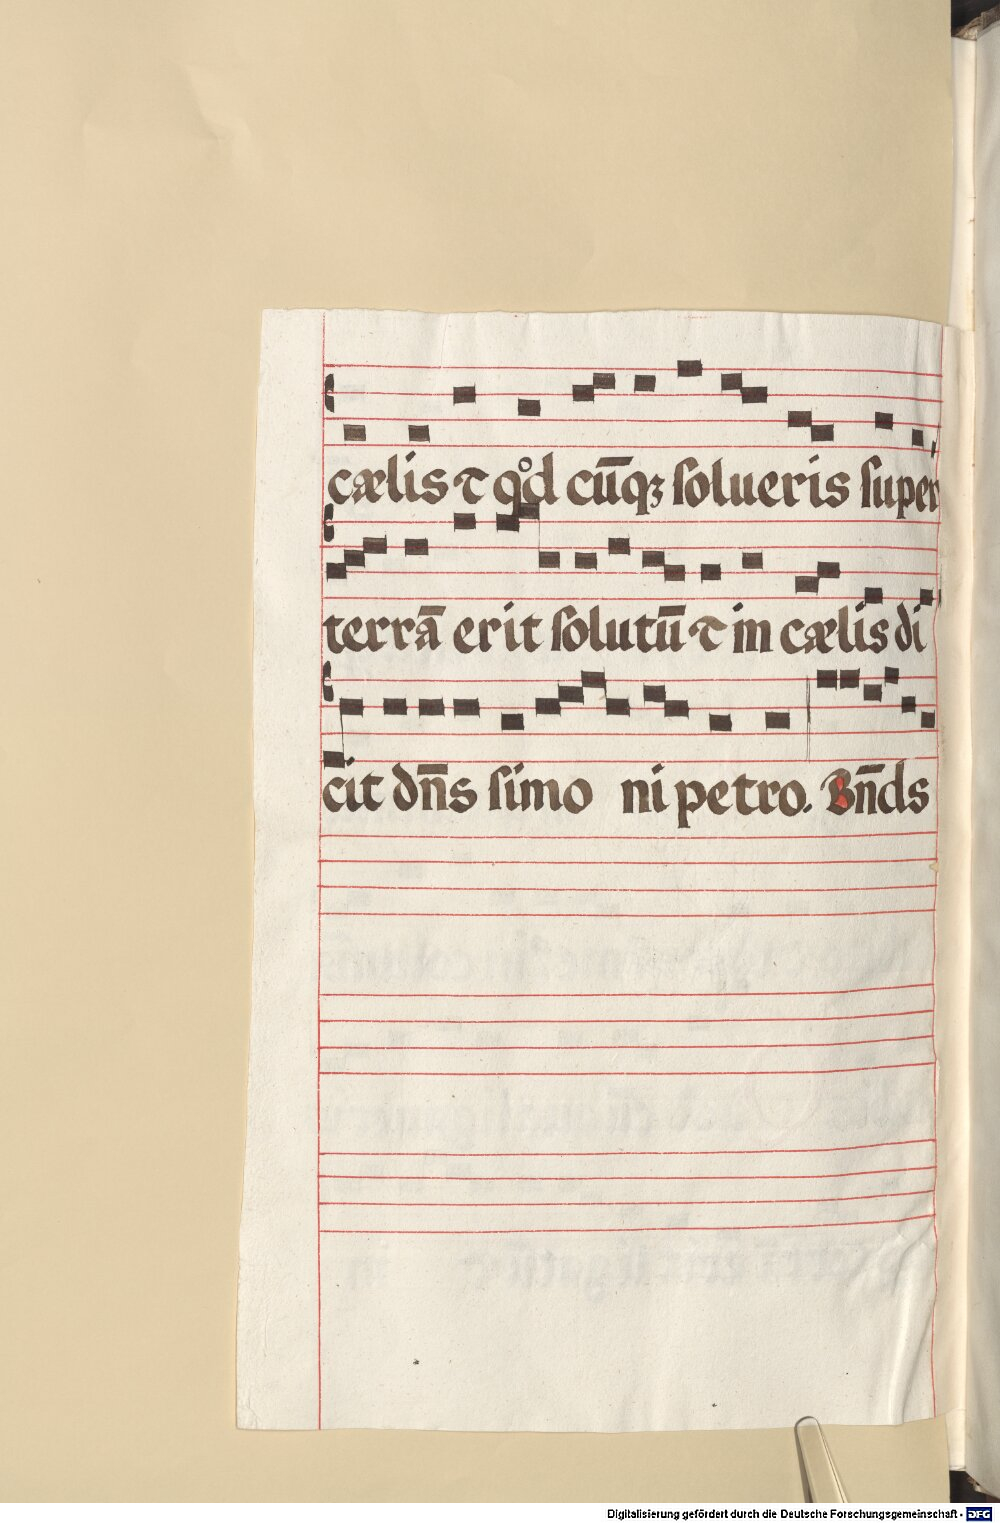 cælis ⁊ qͦd cūqꝫ ſolueris ſuper
terrā erit ſolutū ⁊ in cælis di
cit dn̄s ſimo ni petro. Bn̄ds
Digitalisierung gefördert durch die Deutsche Forschungsgemeinschaft - DFG